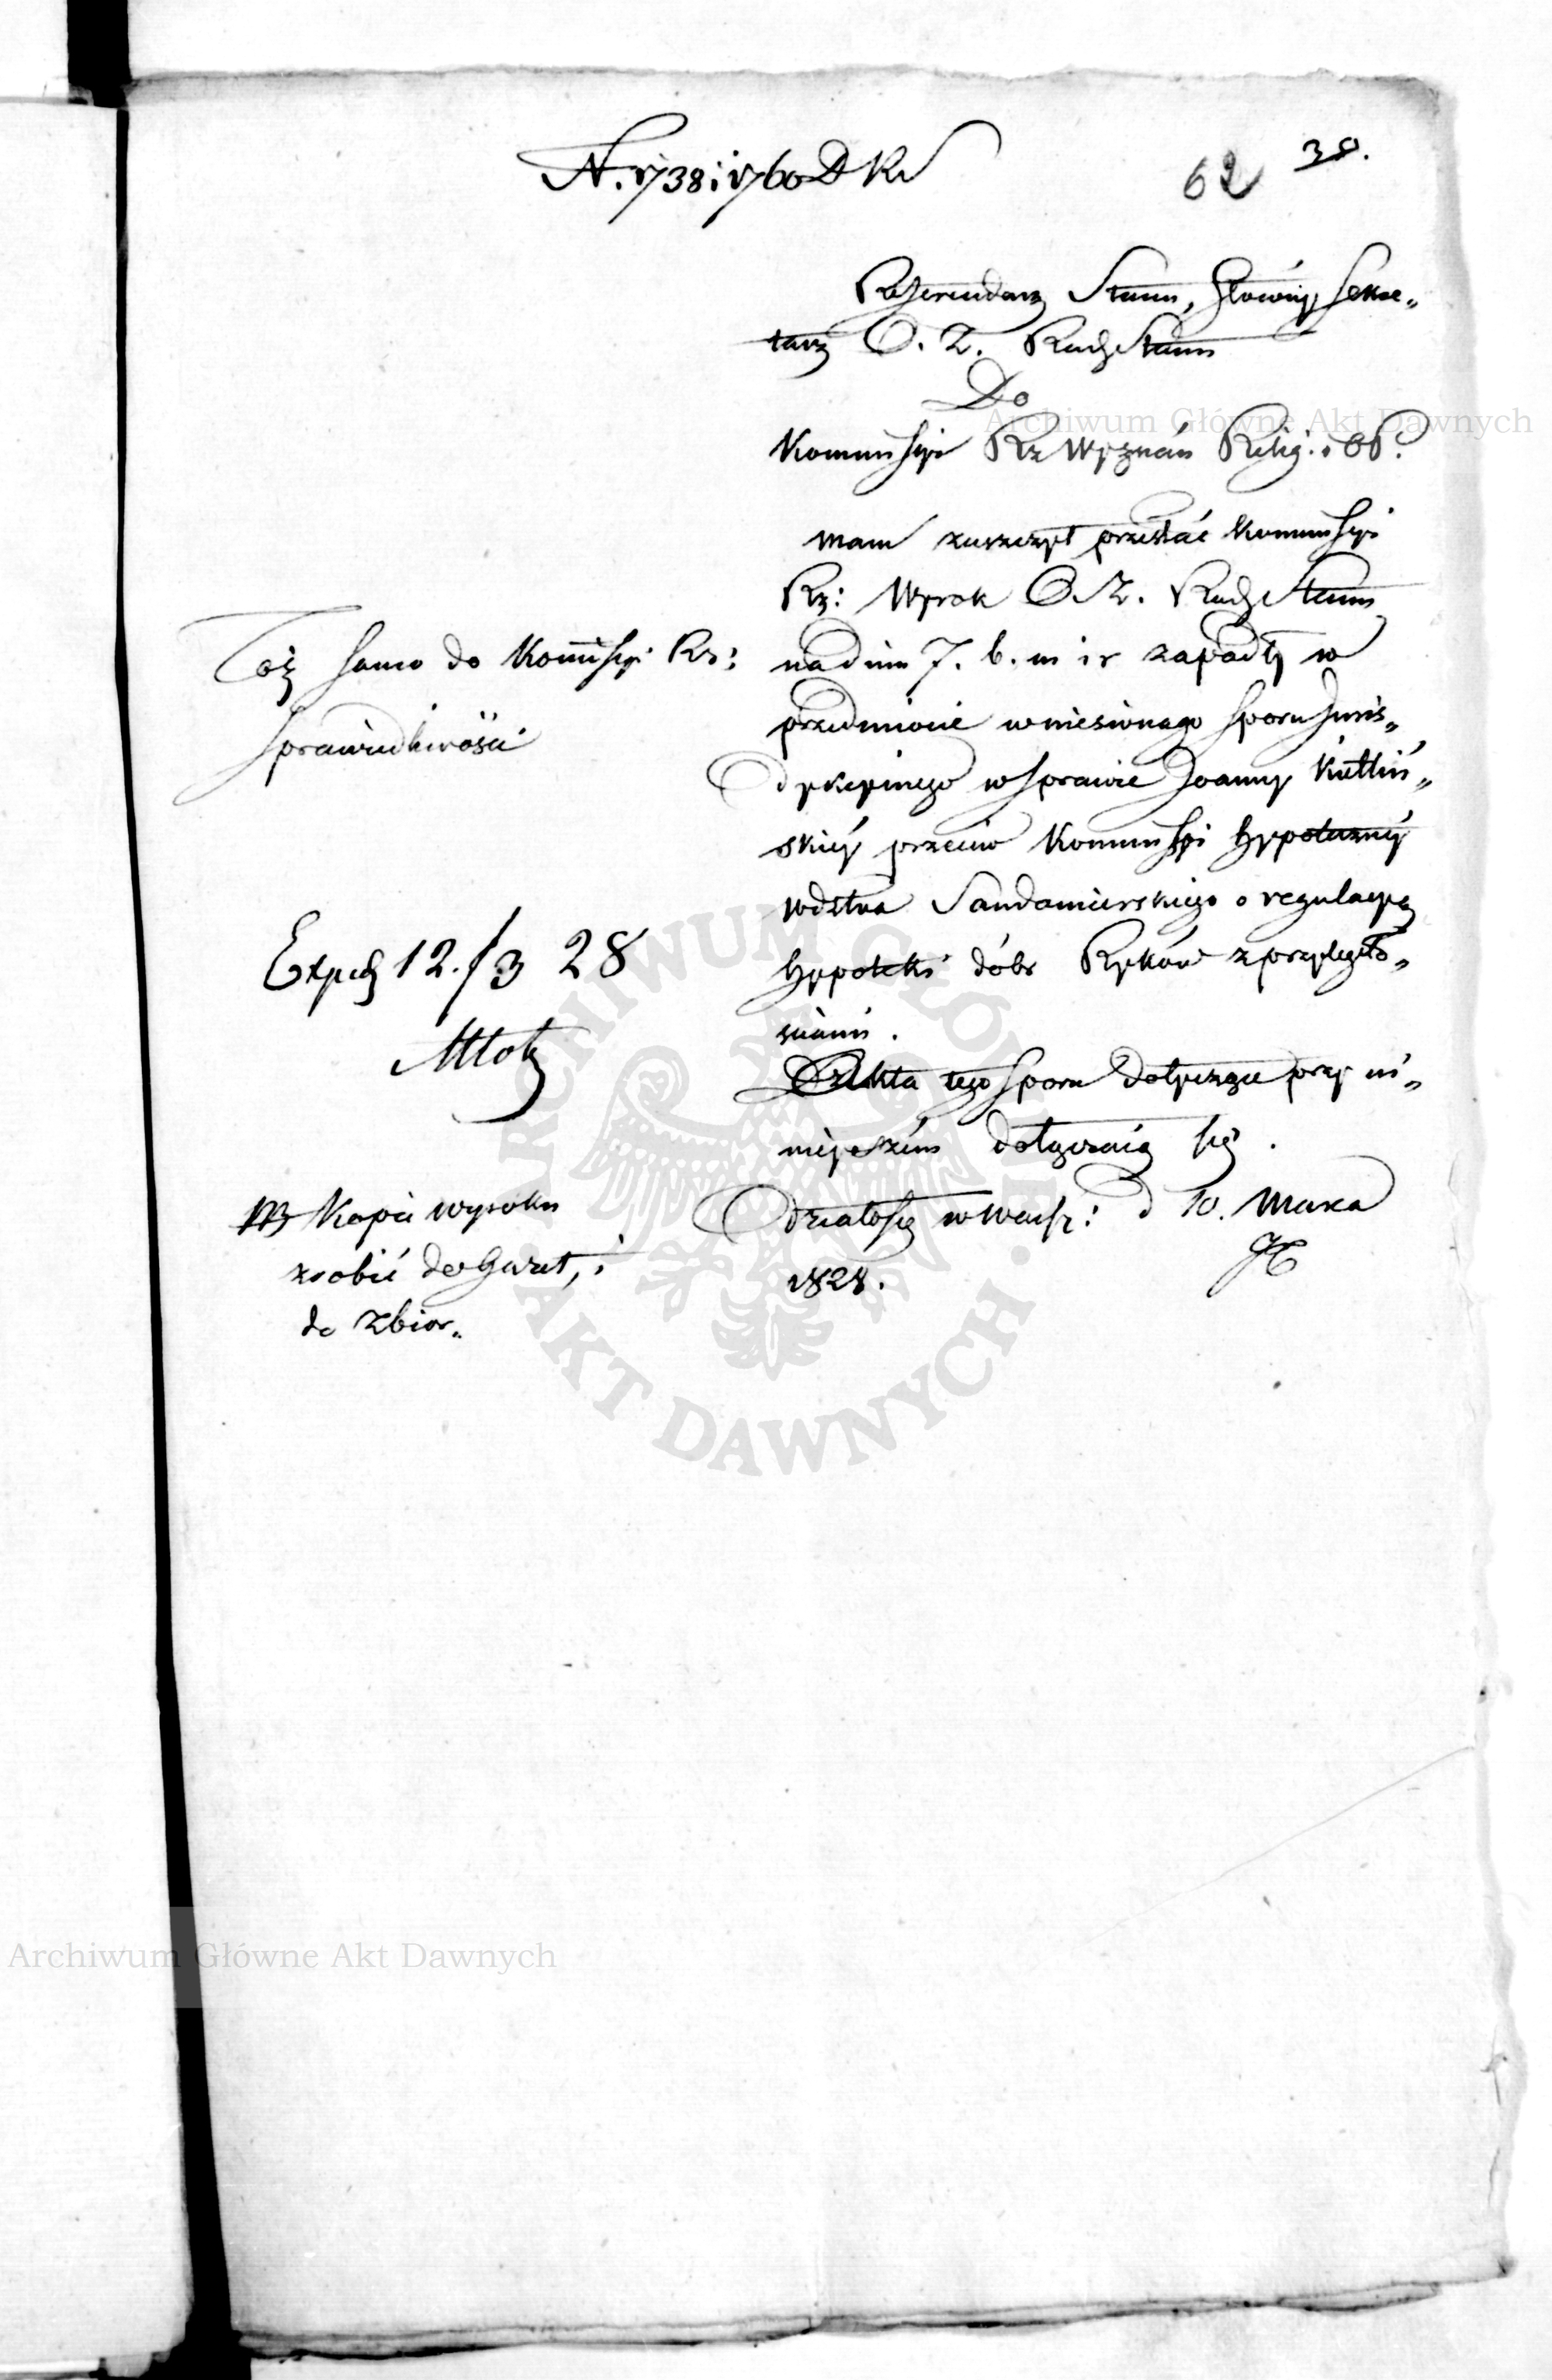 N. 1738 i 1760 D K
62 38.
Referendarz Stanu, Główny Sekre„
tarz O. Z. Rady Stanu
Do
Kommissyi Rz Wyznań Relig. i OP.
mam zaszczyt przesłać Kommissyi
Rz: Wyrok O. Z. Rady Stanu
na dniu 7. b. m i r zapadły w
przedmiocie wniesionego sporu Juris„
dykcyinego w sprawie Joanny Kietliń„
skiéy przeciw Kommissyi hypoteczney
wdztwa Sandomierskiego o regulacyą
hypoteki dóbr Ryków z przyległo„
sciami.
Akta tego sporu dotyczące przy ni„
nieyszém dołączaią się.
Działo się w Warsz: d 10. Marca
1828.
Toż samo do Kommissyi Rz:
Sprawiedliwości
Exped 12./3 28
Młok
NB Kopie wyroku
zrobić do Gazet, i
do Zbior„
Archiwum Główne Akt Dawnych
ARCHIWUM GŁÓWNE
AKT DAWNYCH
Archiwum Główne Akt Dawnych